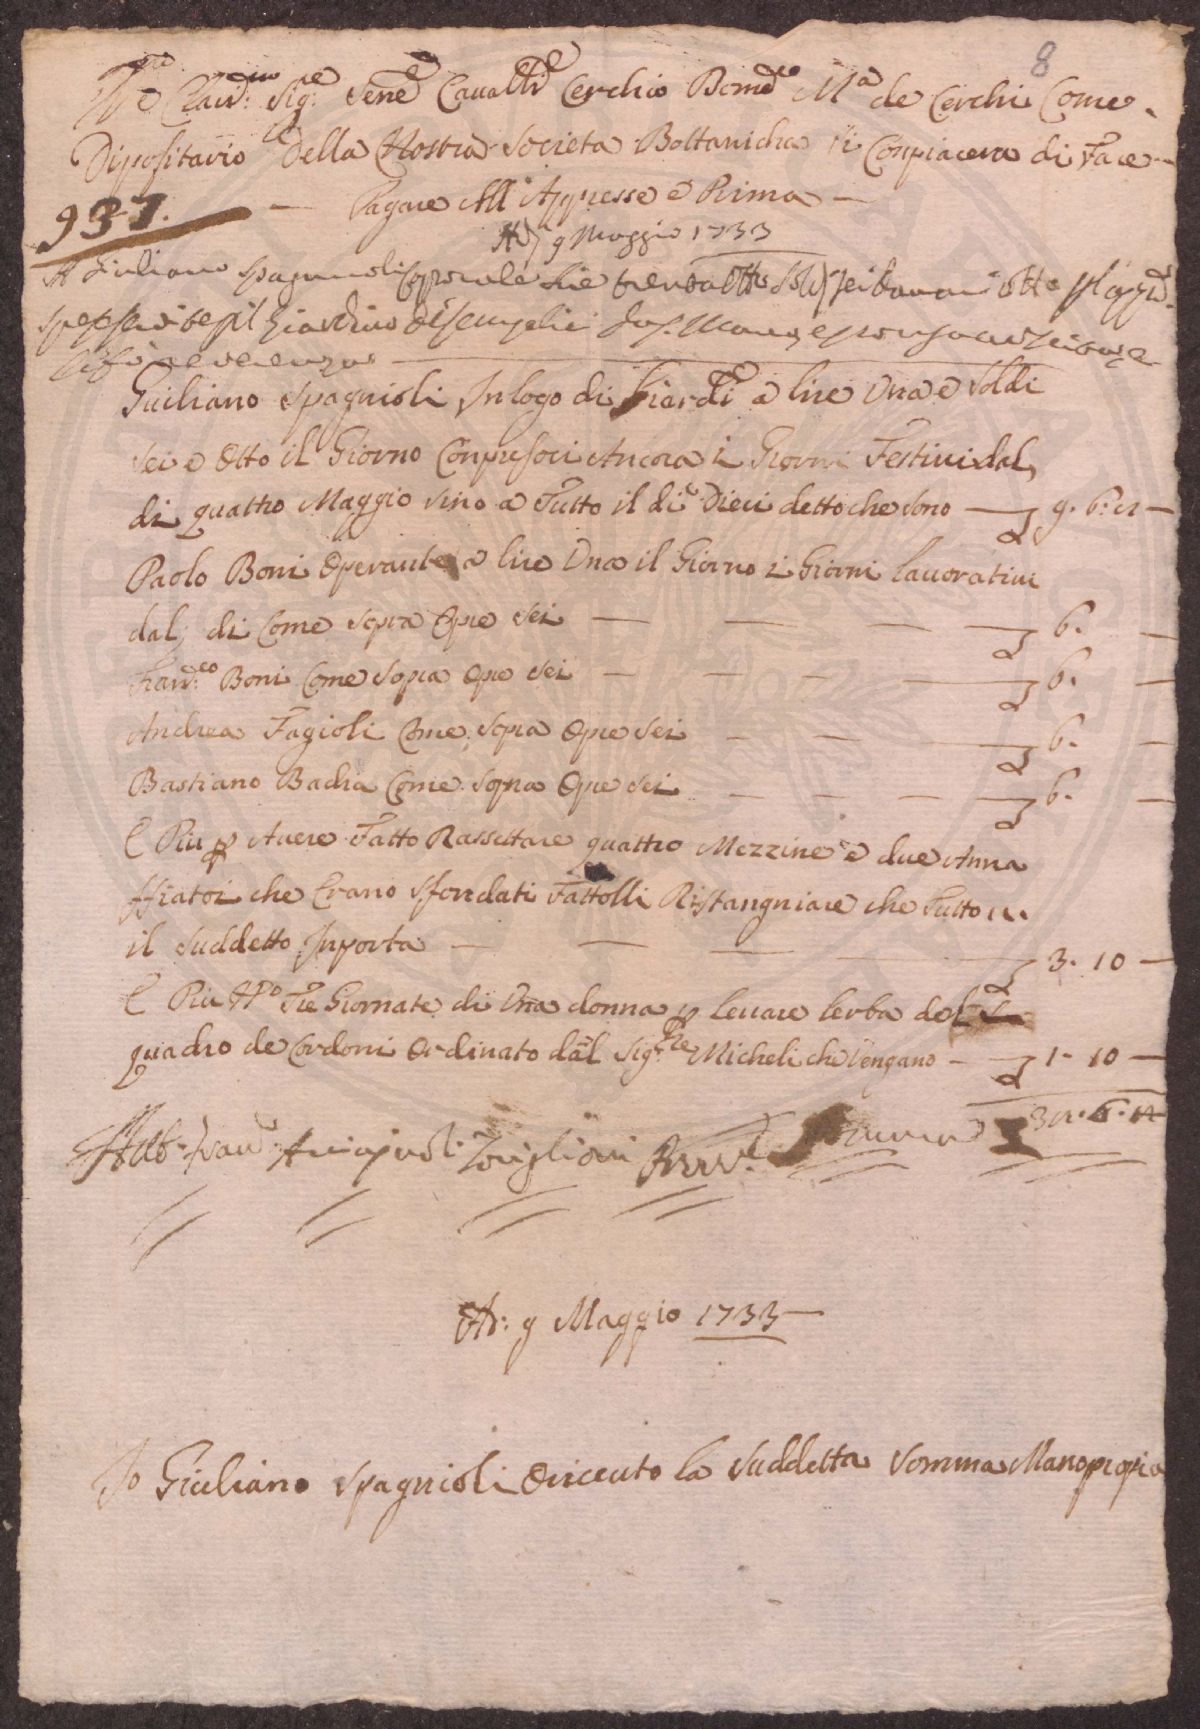 8
Sig.re Cavall.re Cerchio M.a de Cerchi Come
Dipositario Della Nostra Societa Bottanicha Si Conpiacera di Fare
937.
Pagare Alli Appresse e Prima
Ad 9 Maggio 1733
A Giuliano Spagnuoli Caporale lire trenta otto
il Giardino di Semplici
Giuliano Spagnioli In logo di Giard.re a lire Una e Soldi
sei e Otto il Giorno Conpresoci Ancora i Giorni Festivi dal
di quattro Maggio Sino a Tutto il di Dieci detto che Sono — 9. 6:
Paolo Boni Operante a lire Una il Giorno i Giorni lavorativi
dal di Come Sopra Opre Sei — 6. —
Fran.co Boni Come Sopra Opre Sei — 6. —
Andrea Fagioli Come Sopra Opre Sei — 6. —
Bastiano Badia Come Sopra Opre Sei — 6. —
E Piu p Avere Fatto Rassettare quattro Mezzine e due Anna
ffiatoi che Erano Sfondati Fattolli Ristangniare che Tutto
il Suddetto Inporta — 3. 10 —
E Piu Tre Giornate di Una donna p levare lerba del
quadro de Cordoni Ordinato dal Sig.re Micheli che Vengano — 1. 10 —
A: 9 Maggio 1733 —
Io Giuliano Spagnioli O riceuto la Suddetta Somma Manopropria